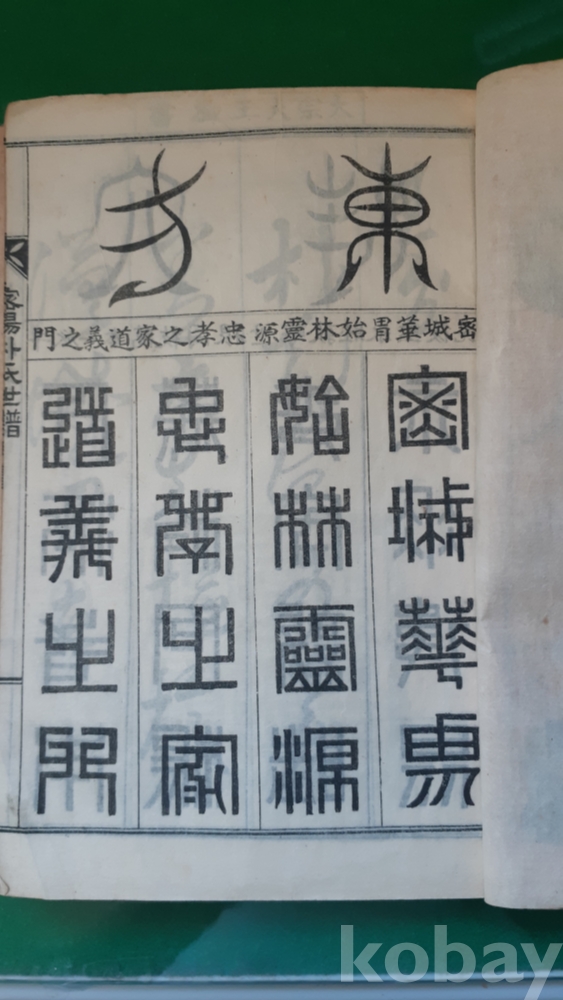 東方
密城華胄始林靈源忠孝之家道義之門
密城華胄
始林靈源
忠孝之家
道義之門
密陽朴氏世譜
kobay